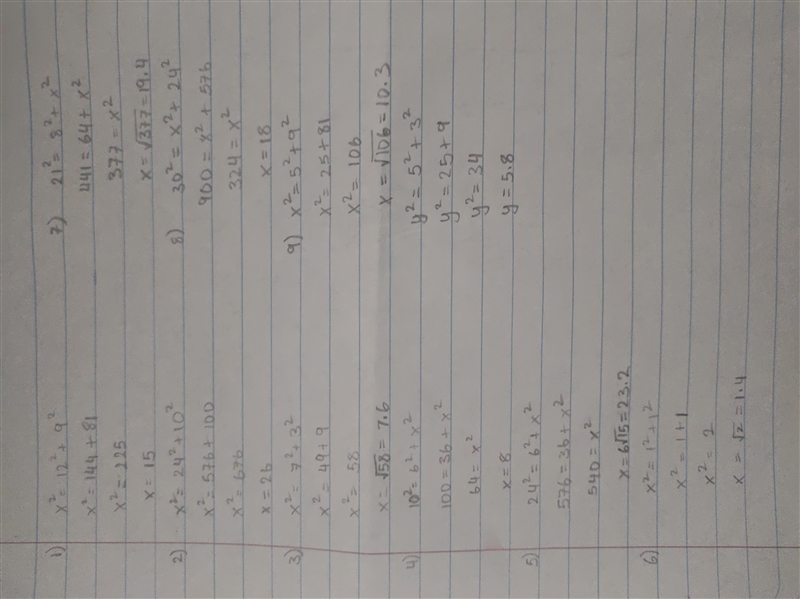 1) x² = 12² + 9²
x² = 144 + 81
x² = 225
x = 15
2) x² = 24² + 10²
x² = 576 + 100
x² = 676
x = 26
3) x² = 7² + 3²
x² = 49 + 9
x² = 58
x = √58 = 7.6
4) 10² = 6² + x²
100 = 36 + x²
64 = x²
x = 8
5) 24² = 6² + x²
576 = 36 + x²
540 = x²
x = 6√15 = 23.2
6) x² = 1² + 1²
x² = 1 + 1
x² = 2
x = √2 = 1.4
7) 21² = 8² + x²
441 = 64 + x²
377 = x²
x = √377 = 19.4
8) 30² = x² + 24²
900 = x² + 576
324 = x²
x = 18
9) x² = 5² + 9²
x² = 25 + 81
x² = 106
x = √106 = 10.3
y² = 5² + 3²
y² = 25 + 9
y² = 34
y = 5.8